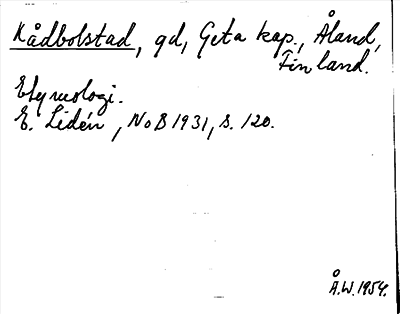 Rådbolstad, gd, Geta kap., Åland,
Finland.
Etymologi.
E. Lidén, NoB 1931, s. 120.
Å.W. 1954.